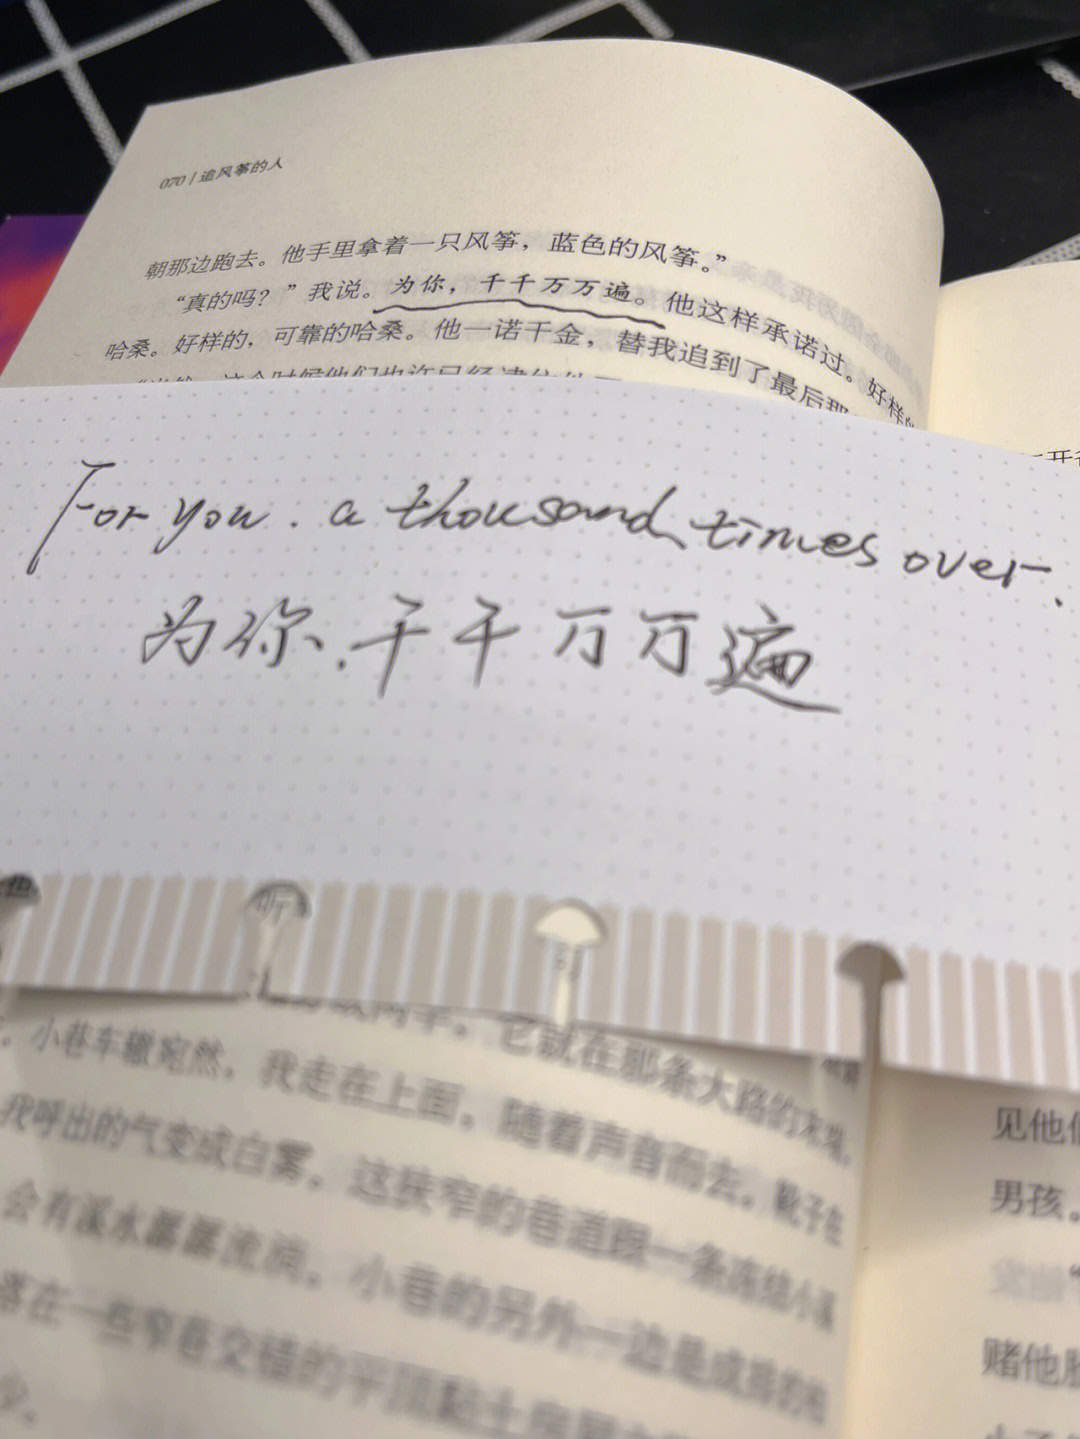 070 | 追风筝的人
朝那边跑去。他手里拿着一只风筝，蓝色的风筝。”
“真的吗？”我说。为你，千千万万遍。他这样承诺过。好样的
哈桑。好样的，可靠的哈桑。他一诺千金，替我追到了最后那
For you. a thousand times over.
为你.千千万万遍
它就在那条大路的末端，
小巷车辙宛然，我走在上面，随着声音而去。靴子在
我呼出的气变成白雾。这狭窄的巷道跟一条冻结小溪
会有溪水潺潺流淌。小巷的另外一边是成排的
落在一些窄巷交错的平顶黏土房屋
少。
见他们
男孩。
赌他